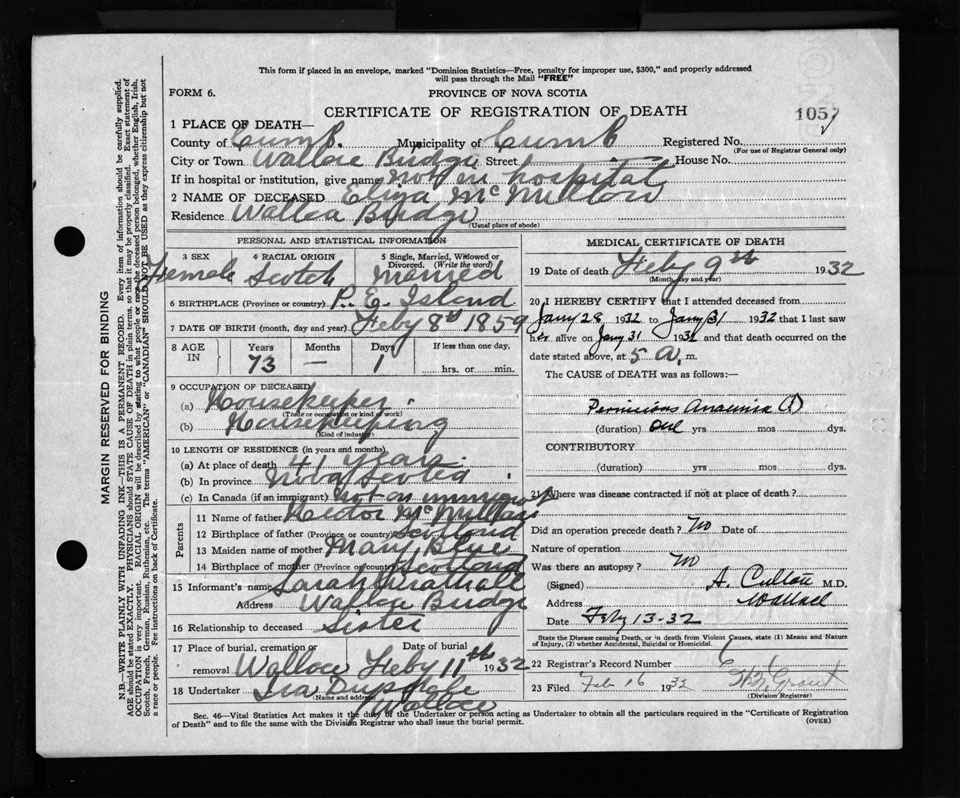 This form if placed in an envelope, marked "Dominion Statistics—Free, penalty for improper use, $300," and properly addressed
will pass through the Mail "FREE"
FORM 6.
PROVINCE OF NOVA SCOTIA
CERTIFICATE OF REGISTRATION OF DEATH
1057
1 PLACE OF DEATH—
County of Cumb. Municipality of Cumb Registered No.
(For use of Registrar General only)
City or Town Wallace Bridge Street House No.
If in hospital or institution, give name not in hospital
2 NAME OF DECEASED Eliza McMillan
Residence Wallace Bridge
(Usual place of abode)
PERSONAL AND STATISTICAL INFORMATION
3 SEX 4 RACIAL ORIGIN 5 Single, Married, Widowed or
Divorced. (Write the word)
Female Scotch married
6 BIRTHPLACE (Province or country) P. E. Island
7 DATE OF BIRTH (month, day and year) Feby 8th 1859
8 AGE IN Years Months Days If less than one day,
73 — 1 hrs. or min.
9 OCCUPATION OF DECEASED
(a) Housekeeper
(Trade or occupation or kind of work)
(b) Housekeeping
(Kind of industry)
10 LENGTH OF RESIDENCE (in years and months)
(a) At place of death 41 years
(b) In province Nova Scotia
(c) In Canada (if an immigrant) not an immigrant
Parents
11 Name of father Hector McMillan
12 Birthplace of father (Province or country) Scotland
13 Maiden name of mother Mary Blue
14 Birthplace of mother (Province or country) Scotland
15 Informant's name Sarah
Address Wallace Bridge
16 Relationship to deceased Sister
17 Place of burial, cremation or removal Date of burial
Wallace Feby 11th 1932
18 Undertaker Wallace
(Name and address)
MEDICAL CERTIFICATE OF DEATH
19 Date of death Feby 9th 1932
(Month, day and year)
20 I HEREBY CERTIFY that I attended deceased from
Jany 28 1932 to Jany 31 1932 that I last saw
her alive on Jany 31 1932 and that death occurred on the
date stated above, at 5 a. m.
The CAUSE OF DEATH was as follows:—
Pernicious Anaemia (1)
(duration) one yrs mos dys.
CONTRIBUTORY
(duration) yrs mos dys.
21 Where was disease contracted if not at place of death?
Did an operation precede death? No Date of
Nature of operation
Was there an autopsy? No
(Signed) A. M.D.
Address Wallace
Date Feby 13-32
State the Disease causing Death, or in death from Violent Causes, state (1) Means and Nature
of Injury, (2) whether Accidental, Suicidal or Homicidal.
22 Registrar's Record Number 6
23 Filed Feb 16 1932 Grant
(Division Registrar)
Sec. 46—Vital Statistics Act makes it the duty of the Undertaker or person acting as Undertaker to obtain all the particulars required in the "Certificate of Registration
of Death" and to file the same with the Division Registrar who shall issue the burial permit.
(OVER)
MARGIN RESERVED FOR BINDING
N.B.—WRITE PLAINLY WITH UNFADING INK—THIS IS A PERMANENT RECORD. Every item of information should be carefully supplied.
AGE should be stated EXACTLY. PHYSICIANS should STATE CAUSE OF DEATH in plain terms, so that it may be properly classified. Exact statement of
OCCUPATION is very important. RACIAL ORIGIN will be described by stating to what people or race the deceased person belonged, whether English, Irish,
Scotch, French, German, Russian, Ruthenian, etc. The terms "AMERICAN" or "CANADIAN" SHOULD NOT BE USED as they express citizenship but not
a race or people. See instructions on back of Certificate.